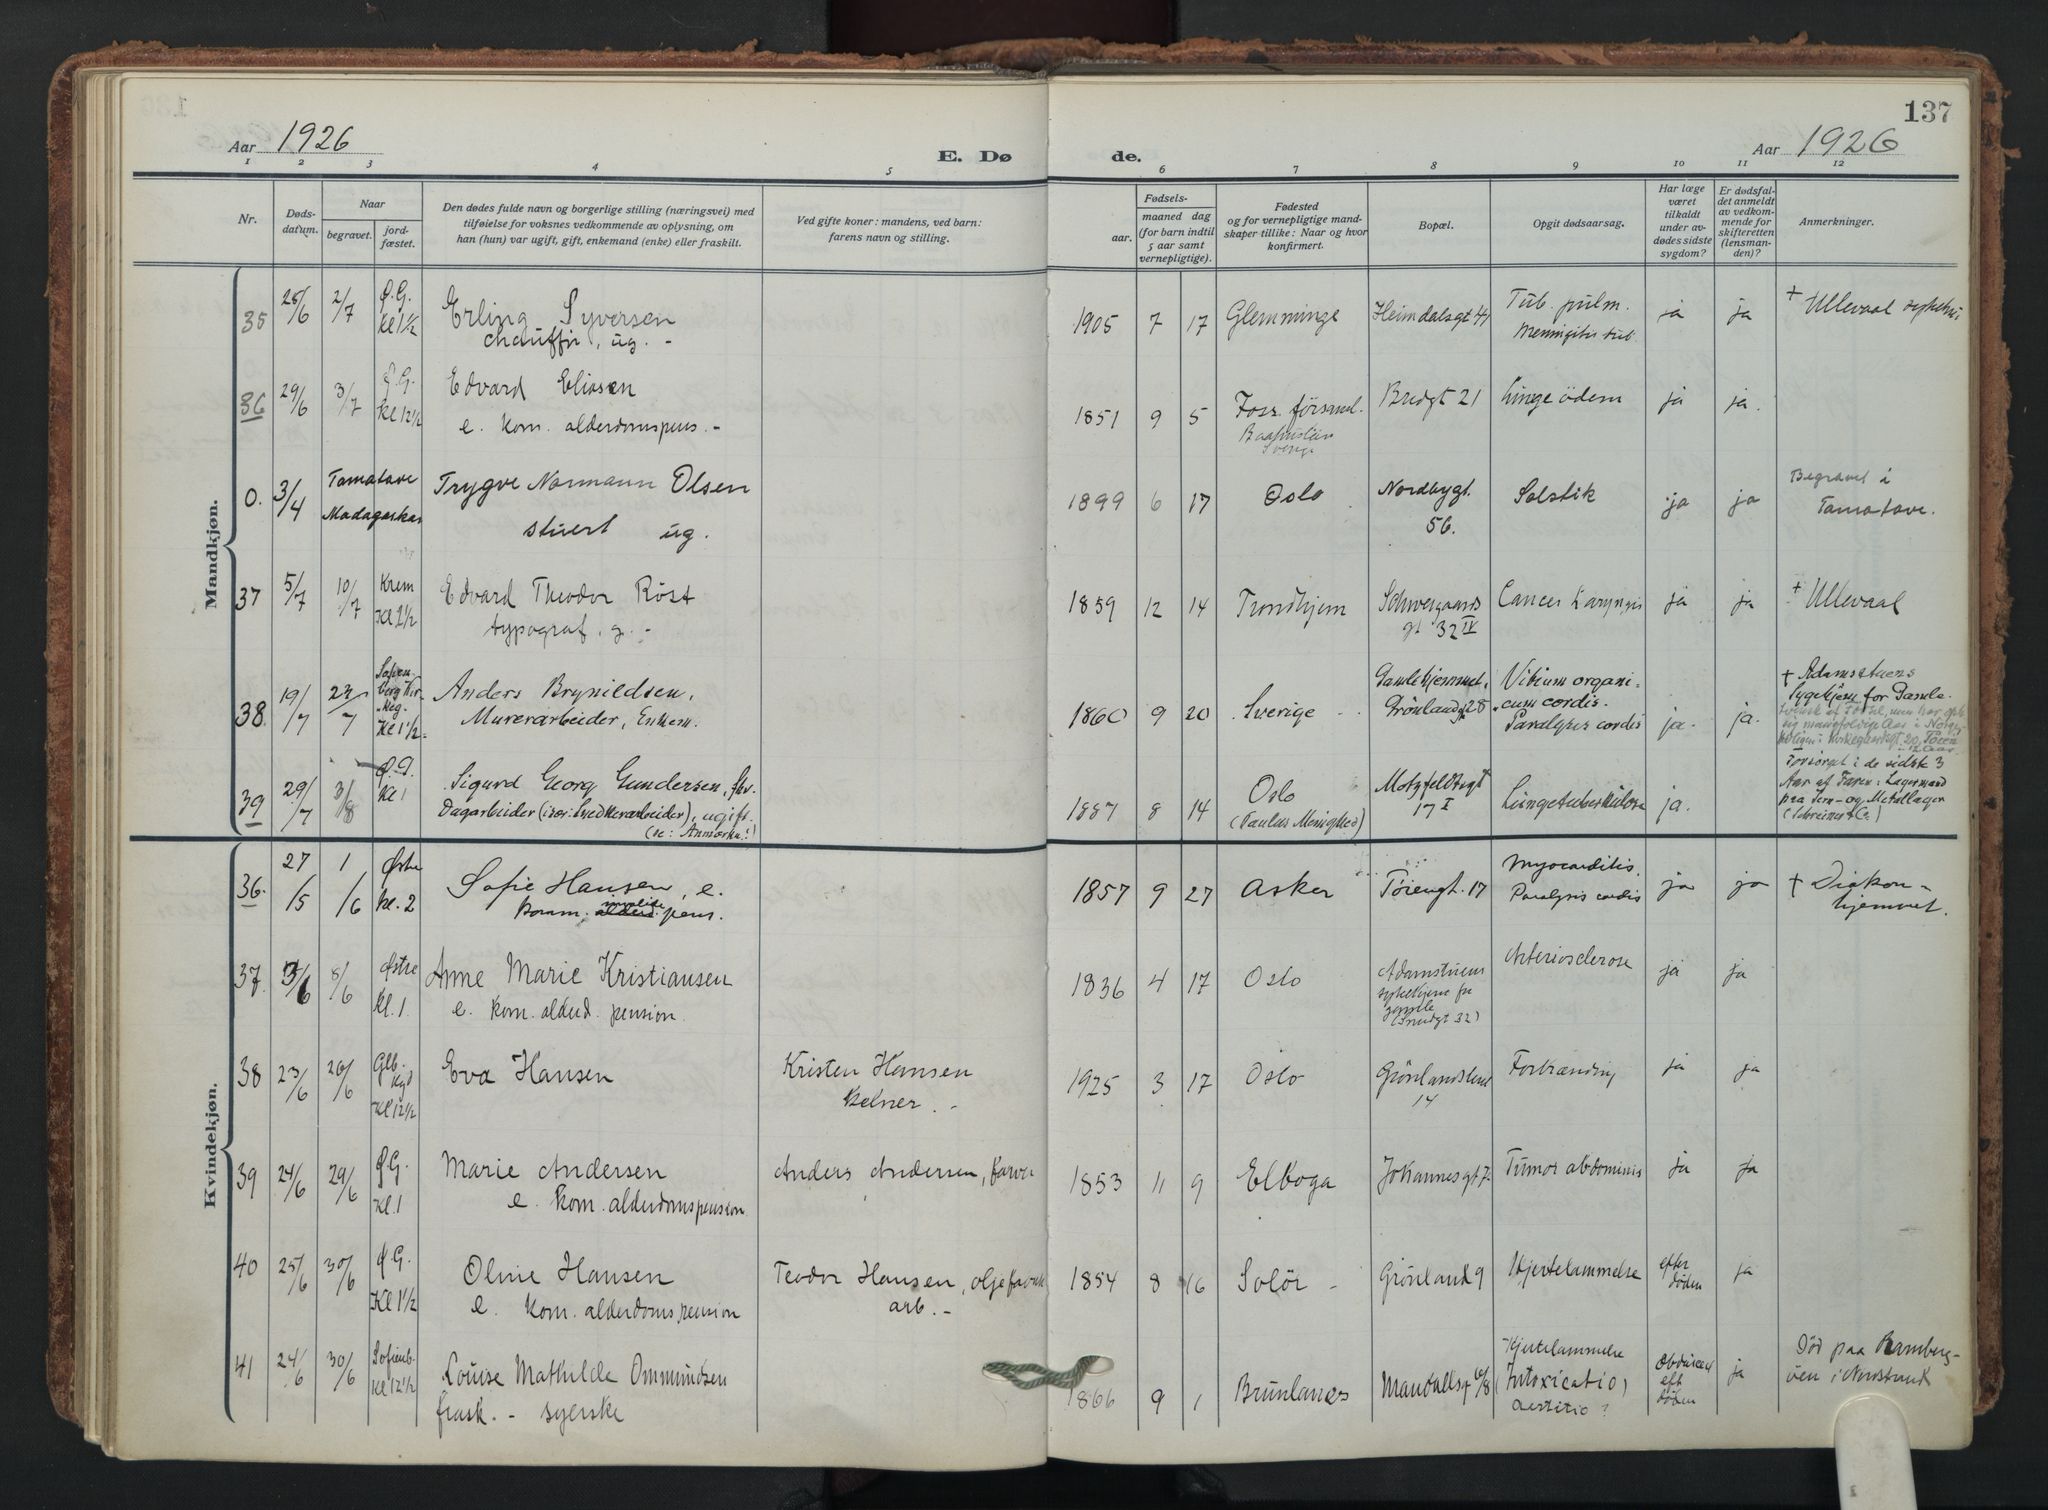 137
Aar 1926
E. Dø
de.
Aar 1926
1 2 3 4 5 6 7 8 9 10 11 12
Nr.
Døds-
datum.
Naar
begravet.
jord-
fæstet.
Den dødes fulde navn og borgerlige stilling (næringsvei) med
tilføielse for voksnes vedkommende av oplysning, om
han (hun) var ugift, gift, enkemand (enke) eller fraskilt.
Ved gifte koner: mandens, ved barn:
farens navn og stilling.
Fødsels-
aar.
maaned dag
(for barn indtil
5 aar samt
vernepligtige).
Fødested
og for vernepligtige mand-
skaper tillike: Naar og hvor
konfirmert.
Bopæl.
Opgit dødsaarsag.
Har læge
været
tilkaldt
under av-
dødes sidste
sygdom?
Er dødsfal-
det anmeldt
av vedkom-
mende for
skifteretten
(lensman-
den)?
Anmerkninger.
Mandkjøn.
35 25/6 2/7 Ø.G. Kl 1½
Erling Syversen
chauffør, ug. -
1905 7 17 Glemminge Heimdalsgt 41
Tub. pulm.
Meningitis tub.
ja ja + Ullevaal
36 29/6 3/7 Ø.G. Kl 12½
Edvard Eliasen
e. kom. alderdomspens. -
1851 9 5
Sverige
Bredgt 21 Lungeödem ja ja.
0. 3/4 Tamatave
Madagaskar
Trygve Normann Olsen
stuert ug.
1899 6 17 Oslo
Nordbygt.
56.
Solstik ja ja
Begravet i
Tamatave.
37 5/7 10/7 Krem Kl 2½
Edvard Theodor Röst
typograf. g. -
1859 12 14 Trondhjem
Schweigaards
gt 32 IV
Cancer Laryngis ja ja + Ullevaal
38. 19/7 23/7 Kl 1½
Anders Brynildsen,
Murerarbeider, Enkem.
1860 9 20 Sverige
Gamlehjemmet,
Grönlandsg 28
Vitium organi-
cum cordis.
Paralysis cordis
ja. ja.
+ Adamstuens
Sygehjem for Gamle.
39 29/7 3/8 Ø.G. Kl 1
Sigurd Georg Gundersen, fhv.
Dagarbeider (især: Snedkerarbeider), ugift.
(se: Anmærkn.!)
1887 8 14 Oslo
(Paulus Menighed)
Motzfeldtsgt
17 I
Lungetuberkulose ja.
Forsörget i de sidste 3
Aar af Faren: Lagermand
paa Jern- og Metallager
(Schreiner & Co.)
Kvindekjøn.
36. 27/5 1/6 Østre kl. 2
Sofie Hansen, e.
komm. alders invalide pens.
1857 9 27 Asker Töiengt. 17
Myocarditis.
Paralysis cordis
ja ja
+ Diakon-
hjemmet.
37. 3/6 8/6 Østre Kl. 1
Anne Marie Kristiansen
e. kom. alderd. pension.
1836 4 17 Oslo
Adamstuens
sykehjem for
gamle
Arteriosclerose ja ja
38 23/6 26/6 Glb. Kgd Kl 12½
Eva Hansen
Kristen Hansen
Kelner. -
1925 3 17 Oslo
Grönlandsleret
14
Forbrænding ja ja
39 24/6 29/6 Ø.G. Kl. 1
Marie Andersen
e. kom. alderdomspension.
Anders Andersen, farver
1853 11 9 Elboga Johannesgt 7. Tumor abdominis ja ja
40 25/6 30/6 Ø.G. Kl 1½
Oline Hansen
e. kom. alderdomspension
Teodor Hansen, oljefabrik
arb. -
1854 8 16 Solör - Grönland 9 Hjertelammelse
efter
döden
ja
41 24/6 30/6 Sofienb. Kl 12½
Louise Mathilde Ommundsen
frask. - syerske
1866 9 1 Brunlanes Mandallsgt 6/8
Hjertelammelse
(Intoxicatio)
ja
Död paa Ramberg-